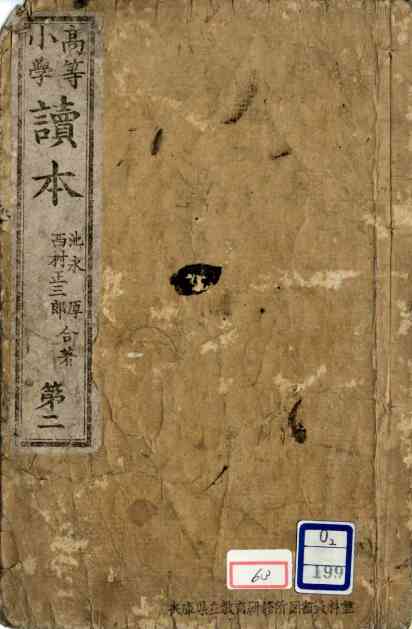 高等
小學
讀本
池永厚
西村正三郎
合著
第二
O2
199
68
兵庫県立教育研修所図書資料室